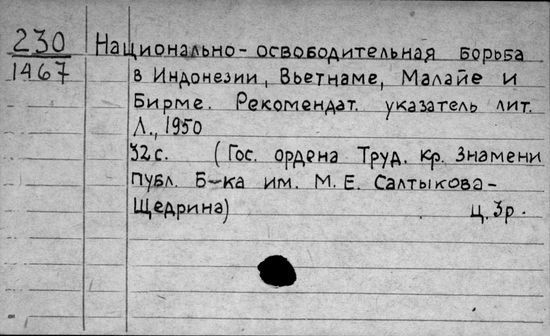 230 Национально-освободительная борьба
1467 в Индонезии, Вьетнаме, Малайе и
Бирме. Рекомендат. указатель лит.
Л., 1950
32с. (Гос. ордена Труд. кр. Знамени
публ. Б-ка им. М. Е. Салтыкова-
Щедрина) ц. 3р.